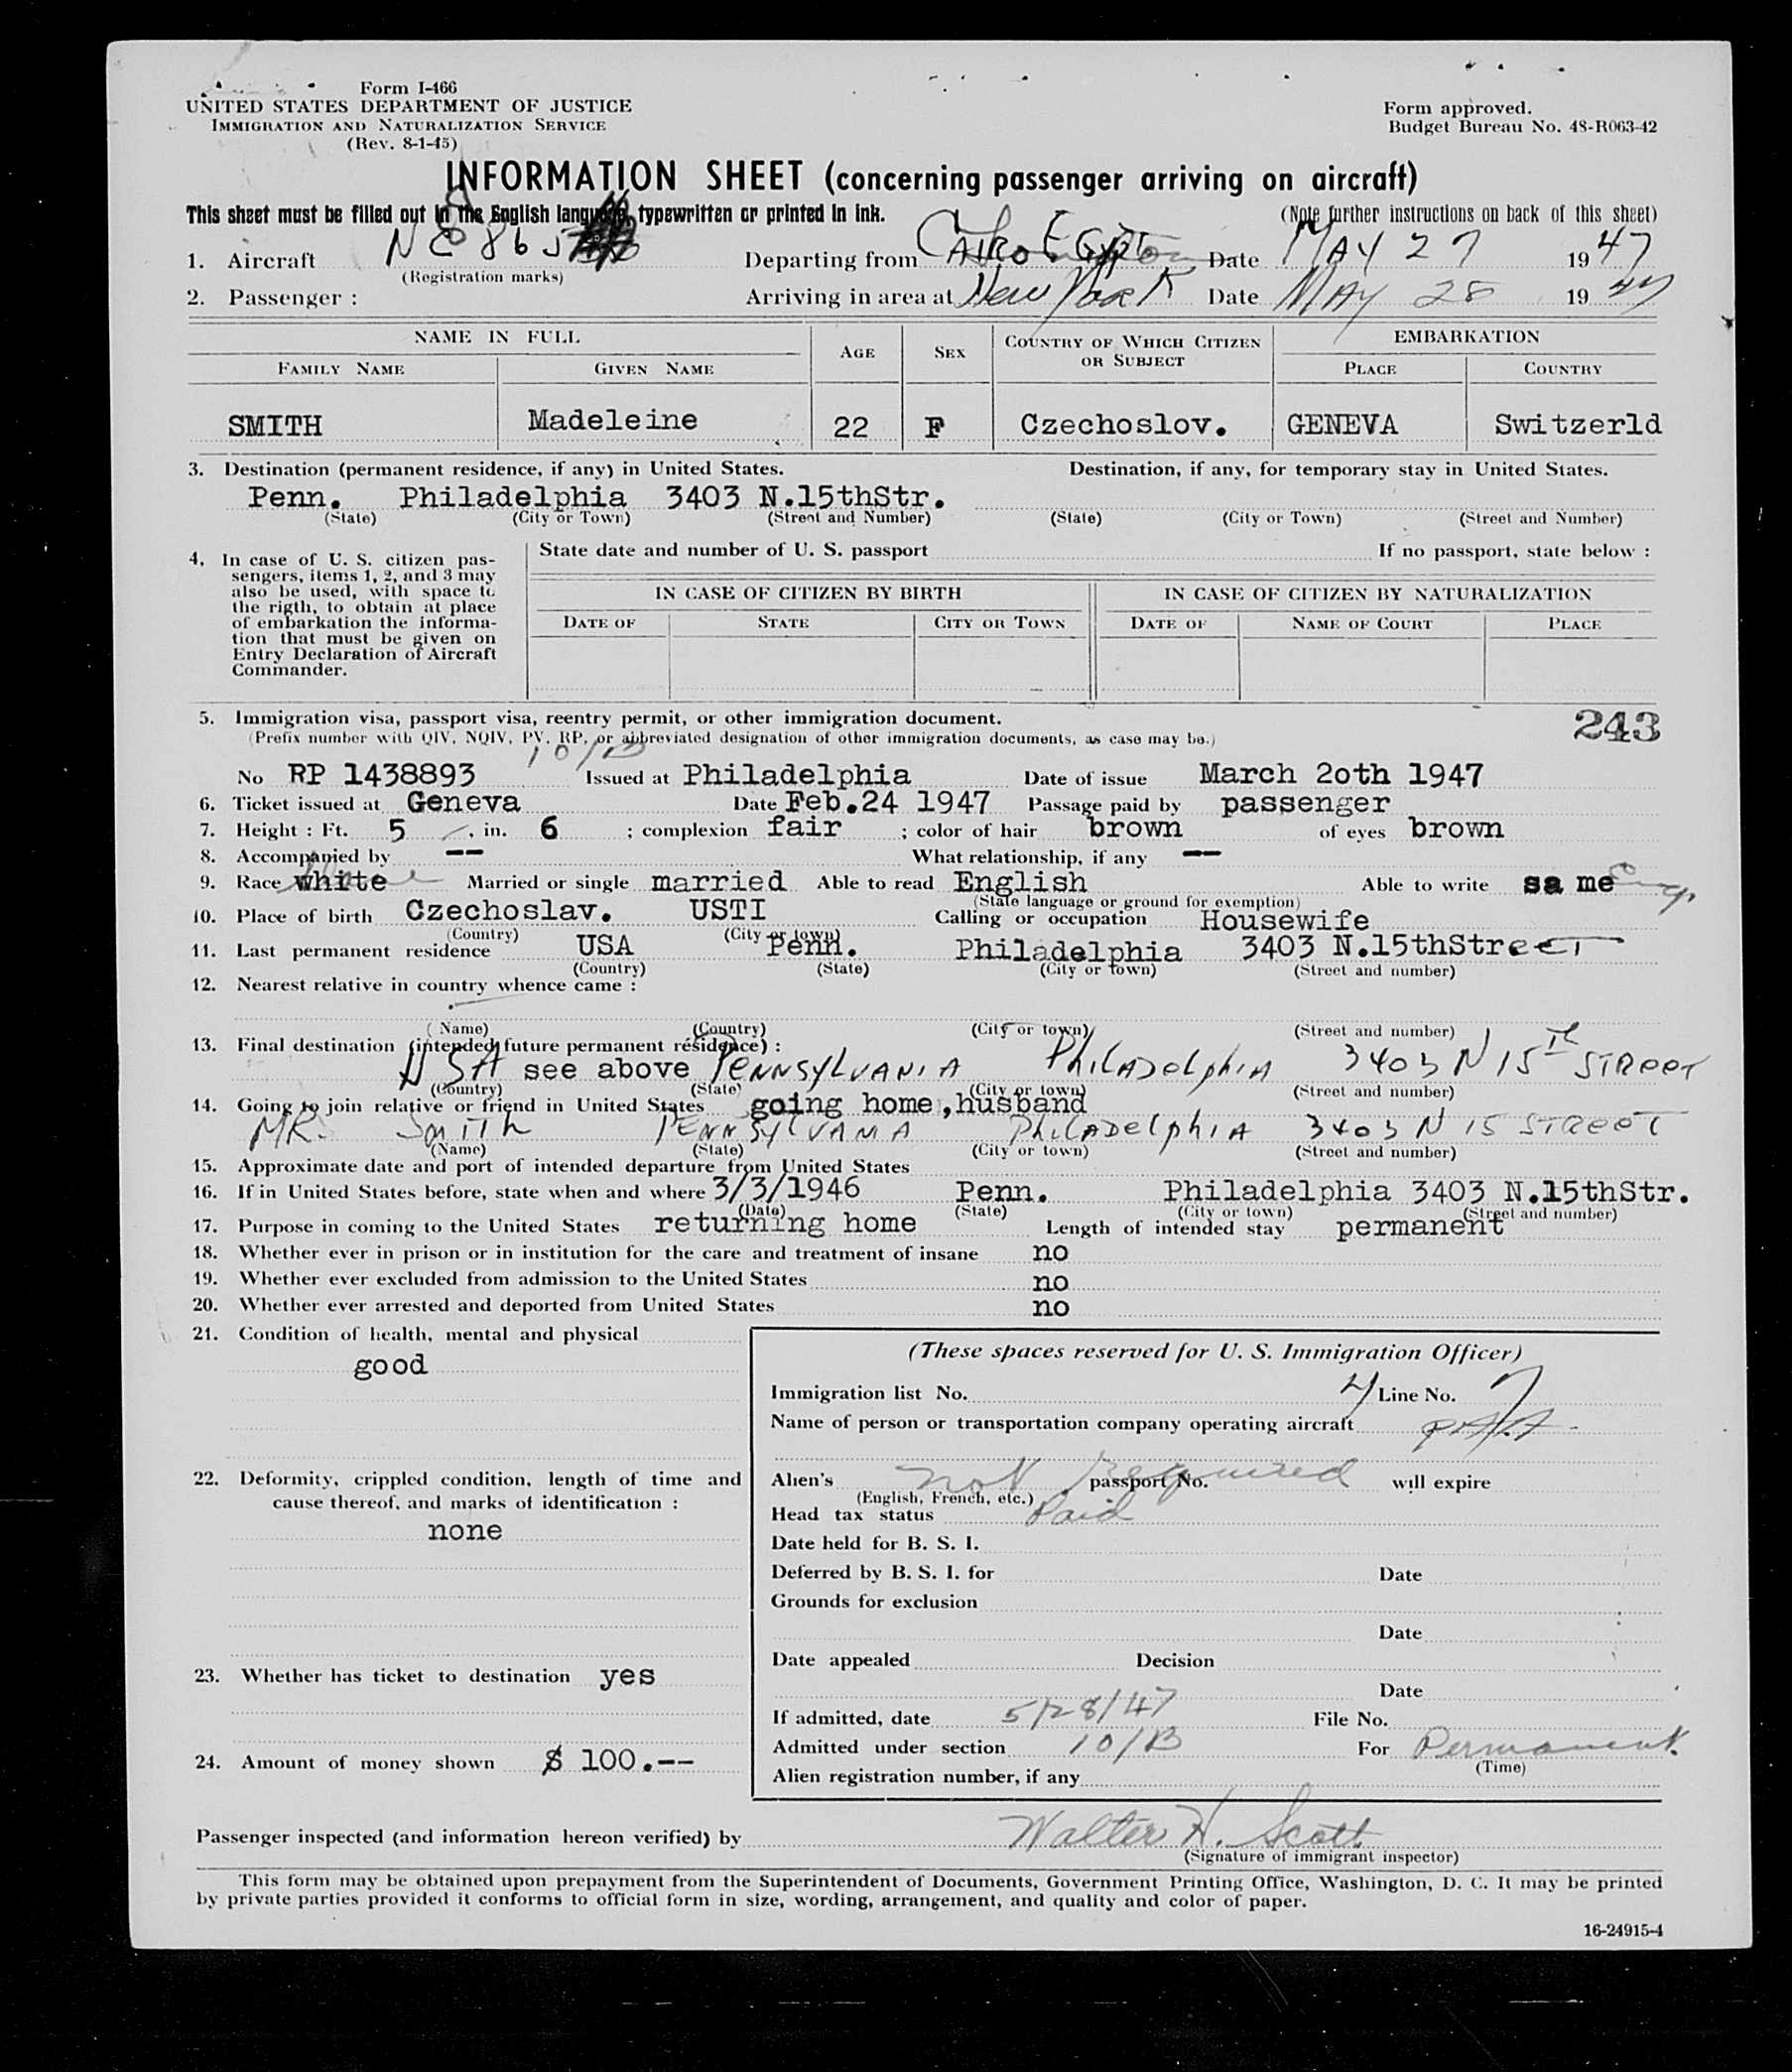 Form I-466
UNITED STATES DEPARTMENT OF JUSTICE
IMMIGRATION AND NATURALIZATION SERVICE
(Rev. 8-1-45)
Form approved.
Budget Bureau No. 43-R063-42
INFORMATION SHEET (concerning passenger arriving on aircraft)
This sheet must be filled out in the English language, typewritten or printed in ink. (Note further instructions on back of this sheet)
1. Aircraft Departing from CAIRO EGYPT Date MAY 27 1947
(Registration marks)
2. Passenger : Arriving in area at New York Date MAY 28 1947
NAME IN FULL AGE SEX COUNTRY OF WHICH CITIZEN OR SUBJECT EMBARKATION
FAMILY NAME GIVEN NAME PLACE COUNTRY
SMITH Madeleine 22 F Czechoslov. GENEVA Switzerld
3. Destination (permanent residence, if any) in United States. Destination, if any, for temporary stay in United States.
Penn. Philadelphia 3403 N.15thStr.
(State) (City or Town) (Street and Number) (State) (City or Town) (Street and Number)
4. In case of U. S. citizen pas-
sengers, items 1, 2, and 3 may
also be used, with space to
the rigth, to obtain at place
of embarkation the informa-
tion that must be given on
Entry Declaration of Aircraft
Commander.
State date and number of U. S. passport If no passport, state below :
IN CASE OF CITIZEN BY BIRTH IN CASE OF CITIZEN BY NATURALIZATION
DATE OF STATE CITY OR TOWN DATE OF NAME OF COURT PLACE
5. Immigration visa, passport visa, reentry permit, or other immigration document. 243
(Prefix number with QIV, NQIV, PV, RP, or abbreviated designation of other immigration documents, as case may be.)
10/B
No RP 1438893 Issued at Philadelphia Date of issue March 2oth 1947
6. Ticket issued at Geneva Date Feb.24 1947 Passage paid by passenger
7. Height : Ft. 5 , in. 6 ; complexion fair ; color of hair brown of eyes brown
8. Accompanied by -- What relationship, if any --
9. Race white Married or single married Able to read English Able to write sa me
(State language or ground for exemption)
10. Place of birth Czechoslav. USTI Calling or occupation Housewife
(Country) (City or town)
11. Last permanent residence USA Penn. Philadelphia 3403 N.15thStreet
(Country) (State) (City or town) (Street and number)
12. Nearest relative in country whence came :
(Name) (Country) (City or town) (Street and number)
13. Final destination (intended future permanent résidence) :
USA see above PENNSYLVANIA PHILADELPHIA 3403 N 15TH STREET
(Country) (State) (City or town) (Street and number)
14. Going to join relative or friend in United States going home,husband
MR. SMITH PENNSYLVANIA PHILADELPHIA 3403 N 15 STREET
(Name) (State) (City or town) (Street and number)
15. Approximate date and port of intended departure from United States
16. If in United States before, state when and where 3/3/1946 Penn. Philadelphia 3403 N.15thStr.
(Date) (State) (City or town) (Street and number)
17. Purpose in coming to the United States returning home Length of intended stay permanent
18. Whether ever in prison or in institution for the care and treatment of insane no
19. Whether ever excluded from admission to the United States no
20. Whether ever arrested and deported from United States no
21. Condition of health, mental and physical
good
22. Deformity, crippled condition, length of time and
cause thereof, and marks of identification :
none
23. Whether has ticket to destination yes
24. Amount of money shown $ 100.--
(These spaces reserved for U. S. Immigration Officer)
Immigration list No. 4 Line No. 7
Name of person or transportation company operating aircraft PAA
Alien's not Required passport No. will expire
(English, French, etc.)
Head tax status Paid
Date held for B. S. I.
Deferred by B. S. I. for Date
Grounds for exclusion
Date
Date appealed Decision
Date
If admitted, date 5/28/47 File No.
Admitted under section 10/B For Permanent
(Time)
Alien registration number, if any
Passenger inspected (and information hereon verified) by Walter H. Scott
(Signature of immigrant inspector)
This form may be obtained upon prepayment from the Superintendent of Documents, Government Printing Office, Washington, D. C. It may be printed
by private parties provided it conforms to official form in size, wording, arrangement, and quality and color of paper.
16-24915-4